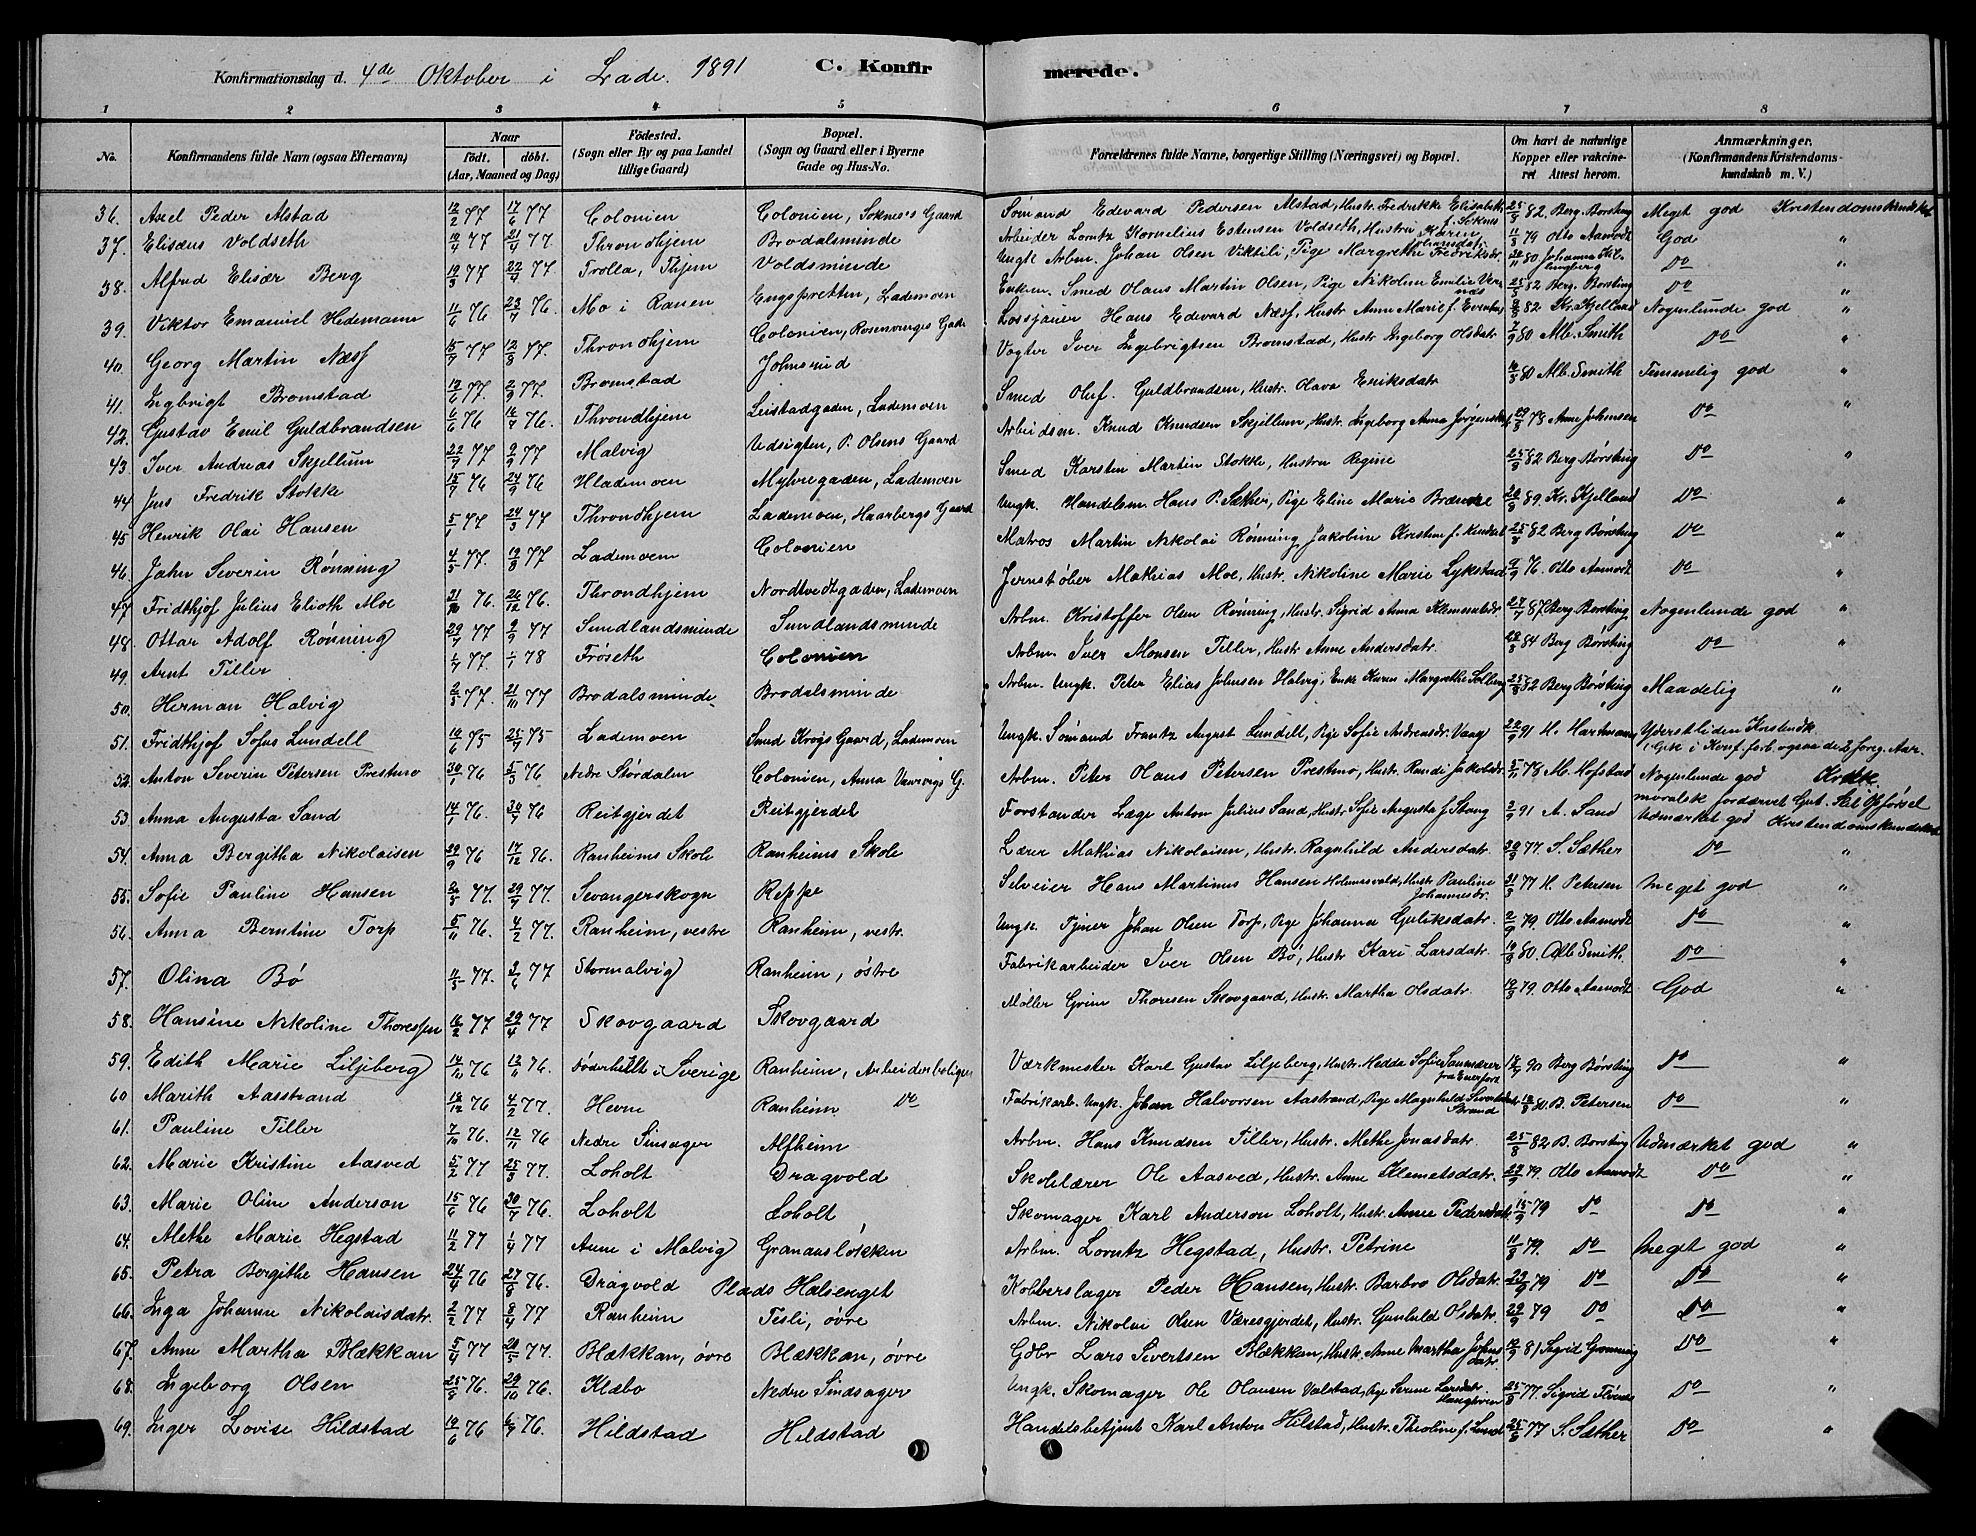 Konfirmationsdag d. 4de Oktober i Lade. 1891 C. Konfirmerede.
1 2 3 4 5 6 7 8
No. Konfirmandens fulde Navn (ogsaa Efternavn) Naar født. døbt. (Aar, Maaned og Dag) Fødested. (Sogn eller By og paa Landet tillige Gaard) Bopæl. (Sogn og Gaard eller i Byerne Gade og Hus-No. Forældrenes fulde Navne, borgerlige Stilling (Næringsvei) og Bopæl. Om havt de naturlige Kopper eller vakcineret Attest herom. Anmærkninger. (Konfirmandens Kristendomskundskab m. V.)
36. Axel Peder Alstad 12/2 77 17/6 77 Colonien Colonien, Soknes's Gaard Sømand Edevard Pedersen Alstad, Hustr. Fredrikke Elisabeth f. Soknes 25/8 82 Berg. Børsting Meget god Kristendomskundskab
37. Elisæus Voldseth 10/4 77 21/4 77 Throndhjem Brodalsminde Arbeider Lorntz Kornelius Estensen Voldseth, Hustru Karen Johansdatr. 11/8 79 Otto Aamodt God "
38. Alfred Elisær Berg 19/3 77 22/4 77 Trolla, Thjem Voldsminde Ungk. Arbm. Johan Olsen Viktili, Pige Margrethe Fredriksdr. 80 Johanna Do "
39. Viktor Emanuel Hedemann 11/6 76 23/7 76. Mo i Ranen Engspretten, Lademoen Enkem. Smed Olaus Martin Olsen, Pige Nikoline Emelie 25/8 82 Berg. Børsting Do "
40. Georg Martin Næss 15/7 77 12/8 77. Throndhjem Colonien, Rosenvinges Gade Lossjaner Hans Edevard Næss, Hustr. Anne Marie f. 82 Kr. Kjelland Nogenlunde god "
41. Ingbrigt Bromstad 12/6 77. 2/9 77. Bromstad Johnsrud Vogter Iver Ingebrigtsen Bromstad, Hustr. Ingeborg Olsdatr 7/9 80 Alb. Smith Do "
42. Gustav Emil Guldbrandsen 6/6 76 16/7 76. Throndhjem Leistadgaden, Lademoen Smed Oluf. Guldbrandsen, Hustr. Olava Eriksdatr 16/8 80 Alb. Smith Temmelig god "
43. Iver Andreas Skjellum 22/7 77 2/9 77 Malvig Udsigten, P. Olsens Gaard Arbeidsm. Knud Knudsen Skjellum, Hustr. Ingeborg Anna Jørgensdatr 29/8 78 Anne Johnsen Do "
44. Jens Fredrik Stokke 15/7 76 24/9 76 Hlademoen Myhregaden, Lademoen Smed Karsten Martin Stokke, Hustru Regine 25/8 82 Berg Børsting Do "
45. Henrik Olai Hansen 5/1 77 24/3 77 Throndhjem Lademoen, Haarbergs Gaard Ungk. Handelsm. Hans P. Sæther, Pige Eline Marie Brænne 26/8 89. Kr. Kjelland Do "
46. John Severin Rønning 4/5 77. 19/8 77 Lademoen Colonien Matros Martin Nikolai Rønning, Jakobine Kirstine f. 25/8 82 Berg Børsting Do "
47. Fridthjof Julius Elioth Moe 21/10 76. 26/12 76. Throndhjem Nordtvedtgaden, Lademoen Jernstøber Mathias Moe, Hustr. Nikoline Marie Lykstad 76. Otto Aamodt Do "
48. Ottar Adolf Rønning 29/7 77 2/9 77 Sundlandsminde Sundlandsminde Arbm. Kristoffer Olsen Rønning, Hustr. Sigrid Anna Klemetsdtr. 27/7 87 Berg Børsting Nogenlunde god "
49. Arnt Tiller 1/7 77. 1/1 78 Frøseth Colonien Arbm. Iver Monsen Tiller, Hustr. Anne Andersdatr. 22/8 84 Berg Børsting Do "
50. Herman Halvig 2/5 77. 21/10 77 Brodalsminde Brodalsminde Arbm. Ungk. Peter Elias Johnsen Halvig, Enke Karen Margrethe Solberg 25/8 82 Berg Børsting Maadelig "
51. Fridthjof Sofus Lundell 10/6 75 25/7 75 Lademoen Smed Krogs Gaard, Lademoen Ungk. Sømand Frantz August Lundell, Pige Sofie Andreasdr. Vang 22/9 91 H. Hartmann Yderst liden Kristendk
i Konf. forb. ogsaa de 2 foreg. Aar.
52. Anton Severin Petersen Prestmo 30/1 76 5/3 76 Nedre Stördalen Colonien, Anna Vanvigs G. Arbm. Peter Olaus Petersen Prestmo, Hustr. Randi Jakobsdr. 5/11 78 M. Hofstad Nogenlunde god Krdk
moralsk fordærvet Gut. Slet Opførsel
53. Anna Augusta Sand 14/1 76. 30/7 76 Reitgjerdet Reitgjerdet Forstander Læge Anton Julius Sand, Hustr. Sofie Augusta f. Stang 2/9 91 A. Sand Udmærket god Kristendomskundskab
54. Anna Bergitha Nikolaisen 29/9 76 17/12 76. Ranheims Skole Ranheims Skole Lærer Mathias Nikolaisen, Hustr. Ragnhild Andersdatr. 30/8 77. S. Sæther Do "
55. Sofie Pauline Hansen 2/5 77. 29/7 77. Sevangerskogn Reppe Selveier Hans Martinus Hansen Holmusvald, Hustr. Pauline Johannesdr. 31/8 77 H. Petersen Meget god "
56. Anna Berntine Torp 5/11 76. 4/2 77. Ranheim, vestre Ranheim, vestr. Ungk. Tjener Johan Olsen Torp, Pige Johanna Guliksdatr. 2/9 79. Otto Aamodt Do "
57. Olina Bø 11/5 77. 3/6 77 Stormalvig Ranheim, østre Fabrikarbeider Iver Olsen Bø, Hustr Kari Larsdatr. 80. Alb Smith. Do "
58. Hansine Nikoline Thoressen 16/2 77 29/4 77 Skovgaard Skovgaard Møller Grim Thoresen Skovgaard, Hustr. Martha Olsdatr. 79. Otto Aamodt God "
59. Edith Marie Liljeberg 14/10 76 12/11 76. i Sverige Ranheim, Arbeiderboliger Værkmester Karl Gustav Liljeberg, Hustr. Hedda Sofie 90 Berg Børsting Do "
60 Marith Aasstrand 18/12 76 4/2 77. Hevne Ranheim Do Fabrikarb. Ungk. Johan Halvorsen Aastrand, Pige Magnhild Strand 80. B. Petersen Do "
61. Pauline Tiller 7/10 76. 12/11 76 Nedre Sinsager Alfheim Arbm. Hans Knudsen Tiller, Hustr. Methe Jonasdatr. 25/8 82 B. Børsting Udmærket god "
62. Marie Kristine Aasved 5/2 77 25/3 77. Loholt Dragvold Skolelærer Ole Aasved, Hustr. Anne Klemetsdatr. 79. Otto Aamodt Do "
63. Marie Oline Anderson 15/6 76 30/7 76. Loholt Loholt Skomager Karl Anderson Loholt, Hustr. Anne Pedersdatr 15/9 79 Do Do "
64. Methe Marie Hegstad 11/2 77 1/4 77 Aune i Malvig Granausløkken Arbm. Lorntz Hegstad, Hustr. Petrine 11/8 79. Do Meget god "
65. Petra Bergithe Hansen 24/4 76 27/8 76. Dragvold Plads Halsenget Kobberslager Peder Hansen, Hustr. Barbro Olsdatr. 23/9 79 Do Do "
66. Inga Johanne Nikolaisdatr. 2/2 77 8/4 77 Ranheim Tesli, øvre Arbm. Nikolai Olsen Væresgjerdet, Hustr. Gunhild Olsdatr. 22/9 79 Do Do "
67. Anne Martha Blækkan 5/4 77 20/5 77. Blækkan, øvre Blækkan, øvre Gdbr Lars Sivertsen Blækkan, Hustr. Anne Martha Johnsdatr 12/9 81 Sigrid Grønning Do "
68. Ingeborg Olsen 25/8 76. 29/10 76. Klæbo Nedre Sindsager Ungk. Skomager Ole Olausen Valstad, Pige Serine Larsdatr 25/8 77. Sigrid Do "
69. Inger Lovise Hildstad 10/6 76 76. Hildstad Hildstad Handelsbetjent Karl Anton Hilstad, Hustr. Theoline f. Lund 25/8 77 S. Sæther Do "